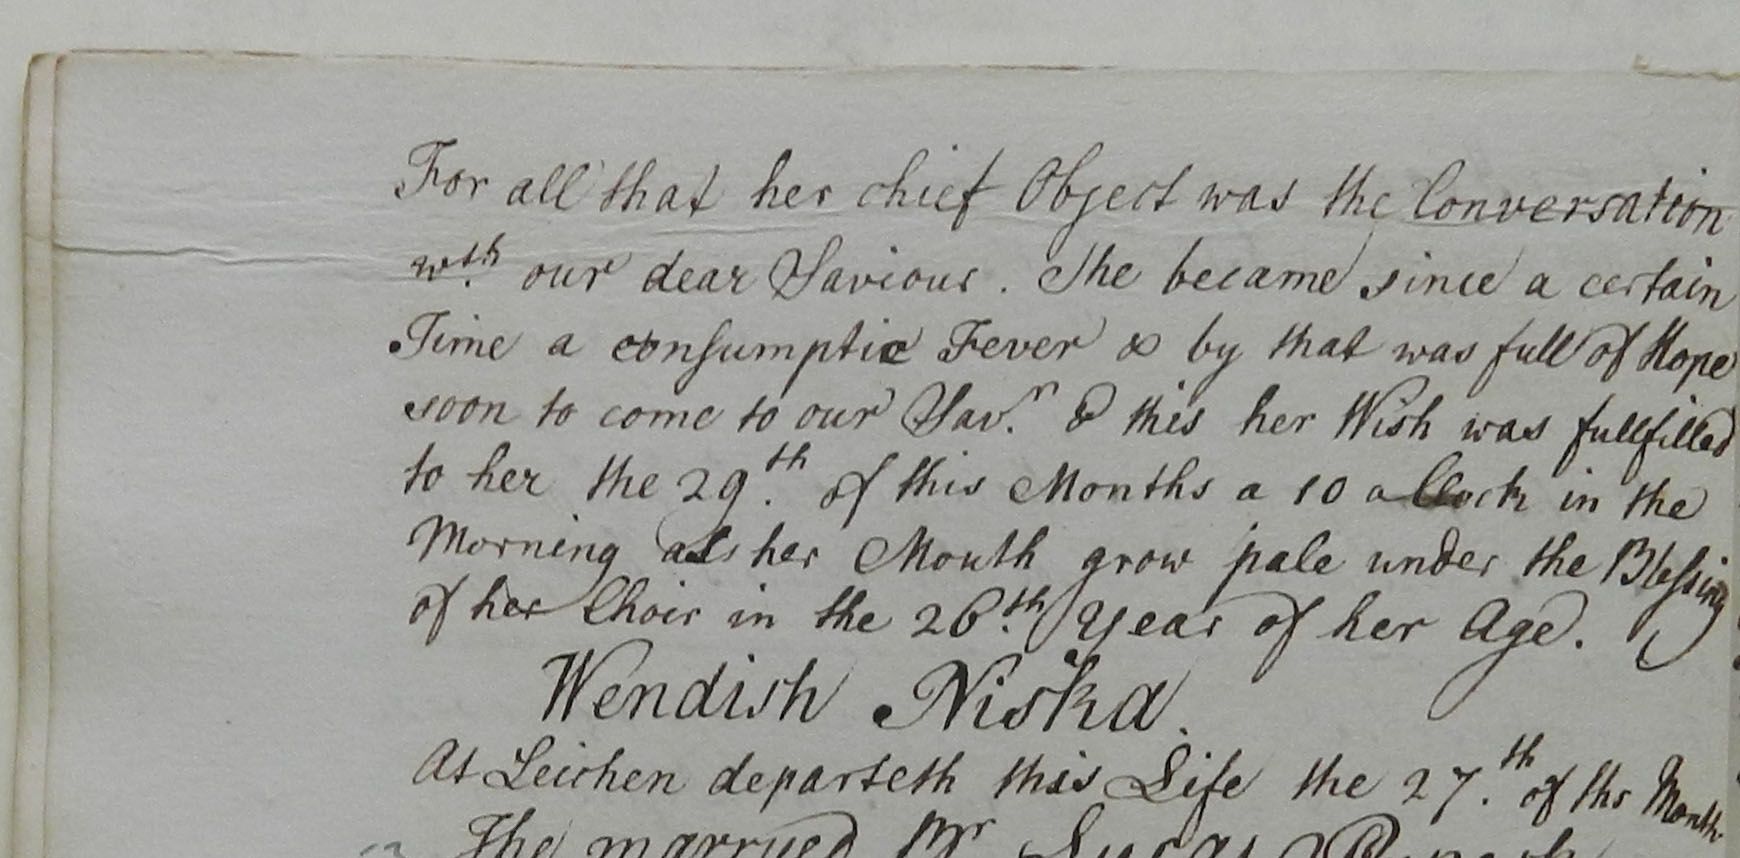 For all that her chief Object was the Conversation
wth. our dear Saviour. She became since a certain
Time a consumptic Fever & by that was full of Hope
soon to come to our Sav.r & this her Wish was fullfilled
to her the 29.th of this Months a 10 a Clock in the
Morning as her Mouth grow pale under the Blessing
of her Choir in the 26.th Year of her Age.
Wendish Niska.
At Leichen departeth this Life the 27.th of ths Month
The married Br Lucas